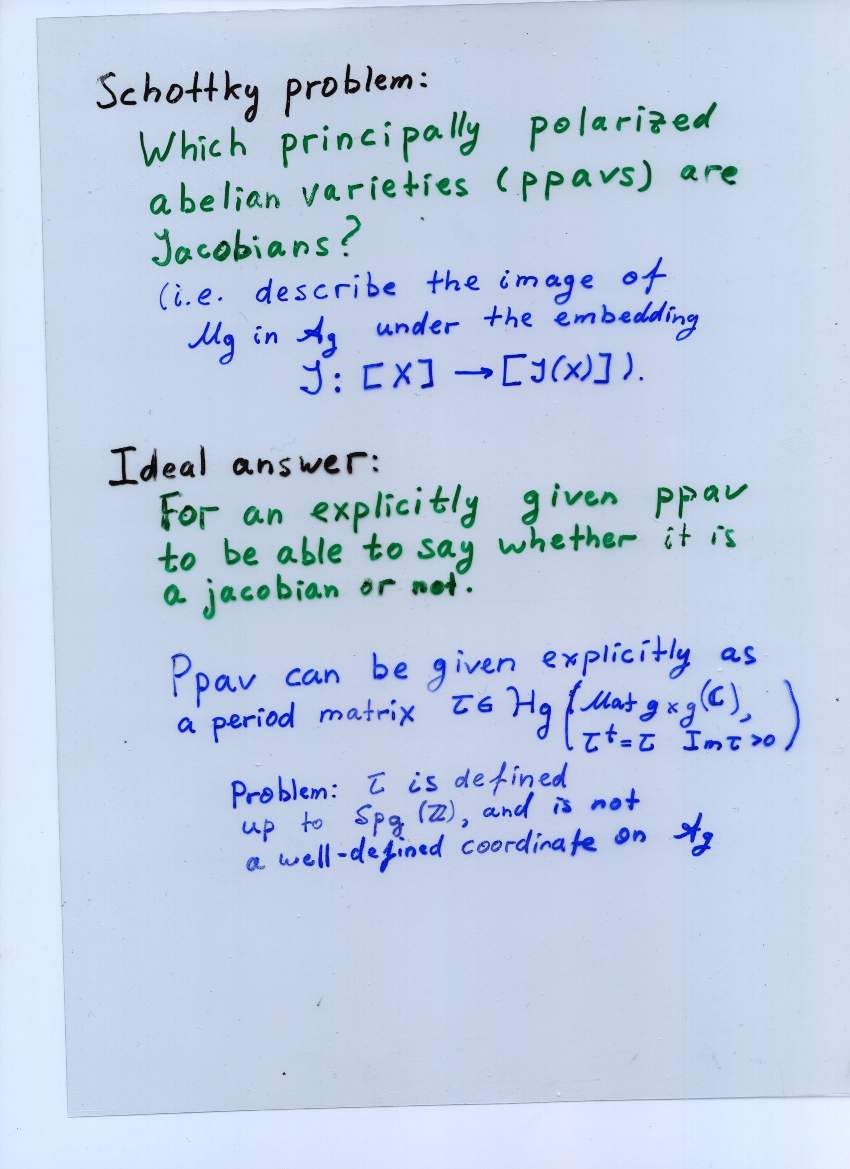 Schottky problem:
Which principally polarized
abelian varieties (ppavs) are
Jacobians?
(i.e. describe the image of
Mg in Ag under the embedding
J: [X] → [J(X)]).
Ideal answer:
For an explicitly given ppav
to be able to say whether it is
a jacobian or not.
Ppav can be given explicitly as
a period matrix τ ∈ Hg (Mat g×g (ℂ),
τᵗ = τ Im τ > 0)
Problem: τ is defined
up to Spg (ℤ), and is not
a well-defined coordinate on Ag